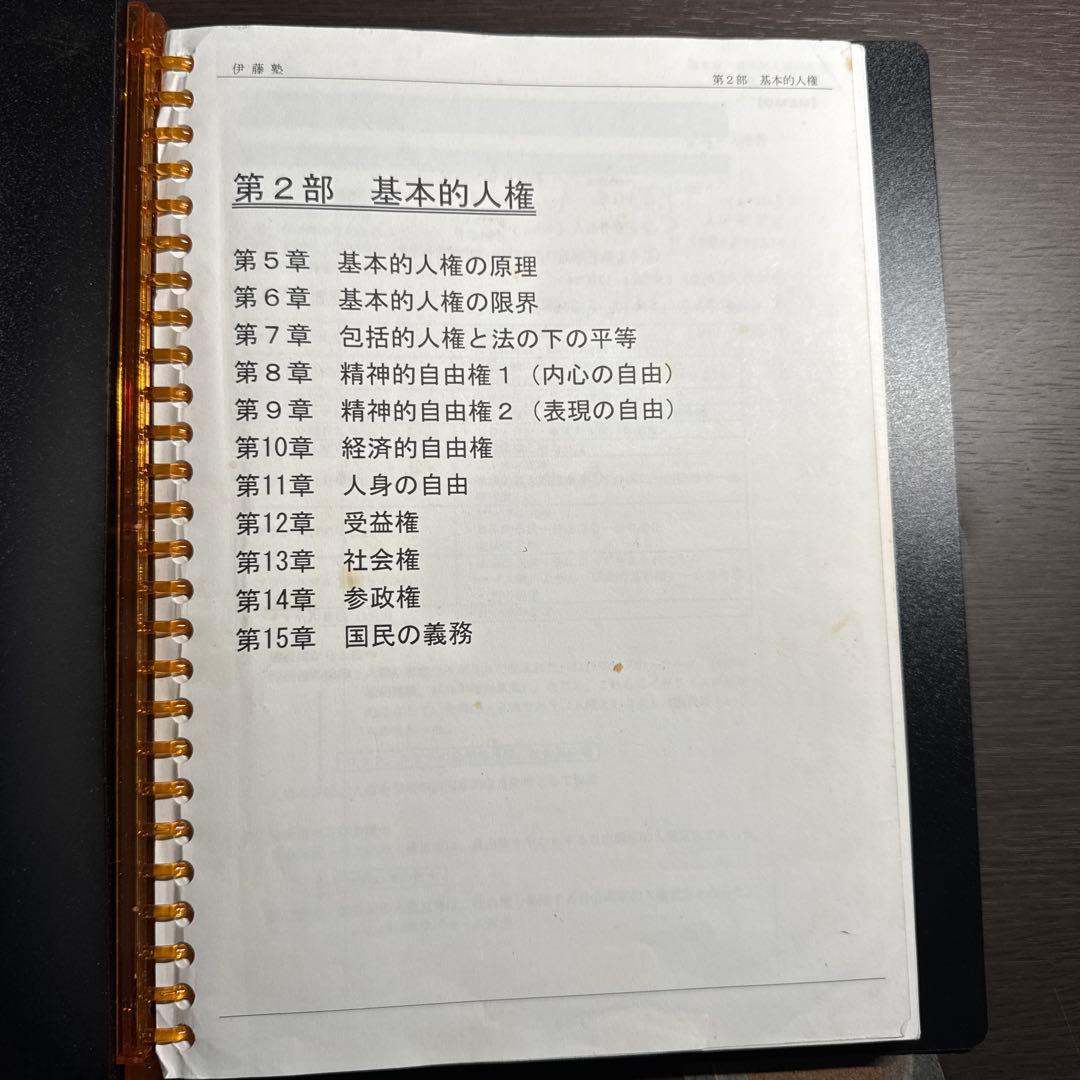 伊藤塾
第2部 基本的人権
第2部 基本的人権
第5章 基本的人権の原理
第6章 基本的人権の限界
第7章 包括的人権と法の下の平等
第8章 精神的自由権1（内心の自由）
第9章 精神的自由権2（表現の自由）
第10章 経済的自由権
第11章 人身の自由
第12章 受益権
第13章 社会権
第14章 参政権
第15章 国民の義務